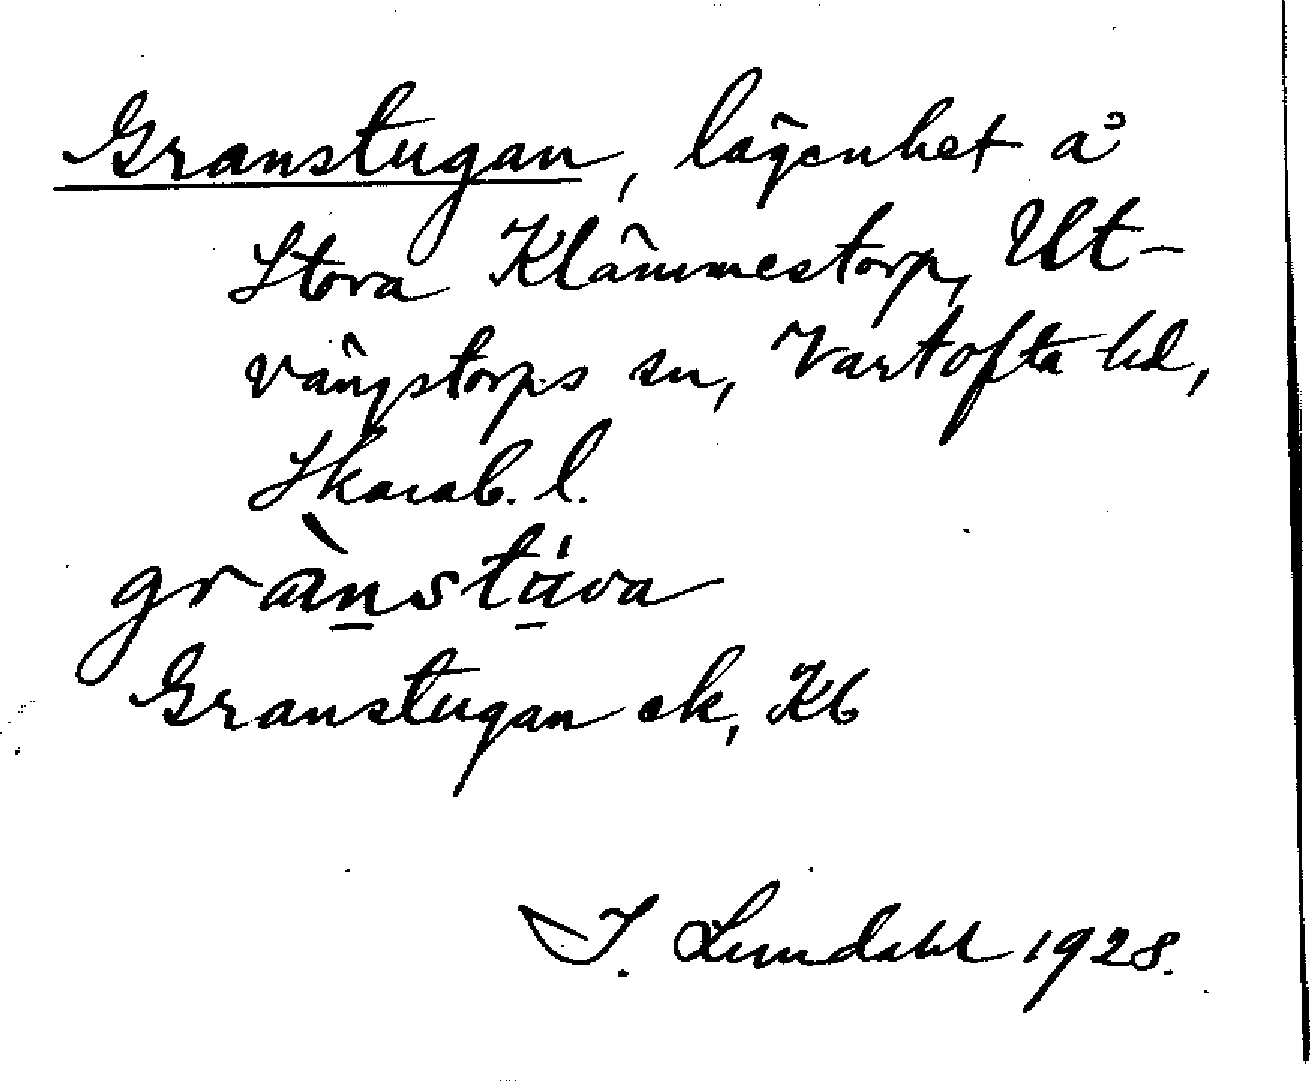 Granstugan, lägenhet å
Stora Klämmestorp, Ut-
vängstorps sn, Vartofta hd,
Skarab. l.
gràn̲stú̲va
Granstugan ek, Kb
I. Lundahl 1928.